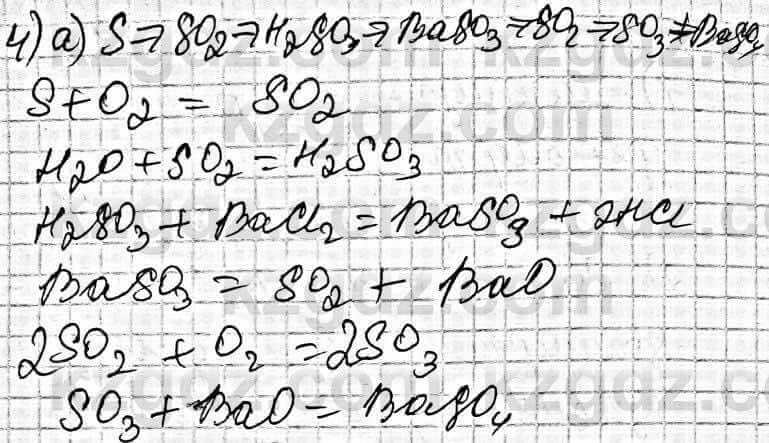 4) a) S → SO₂ → H₂SO₃ → BaSO₃ → SO₂ → SO₃ → BaSO₄
S + O₂ = SO₂
H₂O + SO₂ = H₂SO₃
H₂SO₃ + BaCl₂ = BaSO₃ + 2HCl
BaSO₃ = SO₂ + BaO
2SO₂ + O₂ = 2SO₃
SO₃ + BaO = BaSO₄